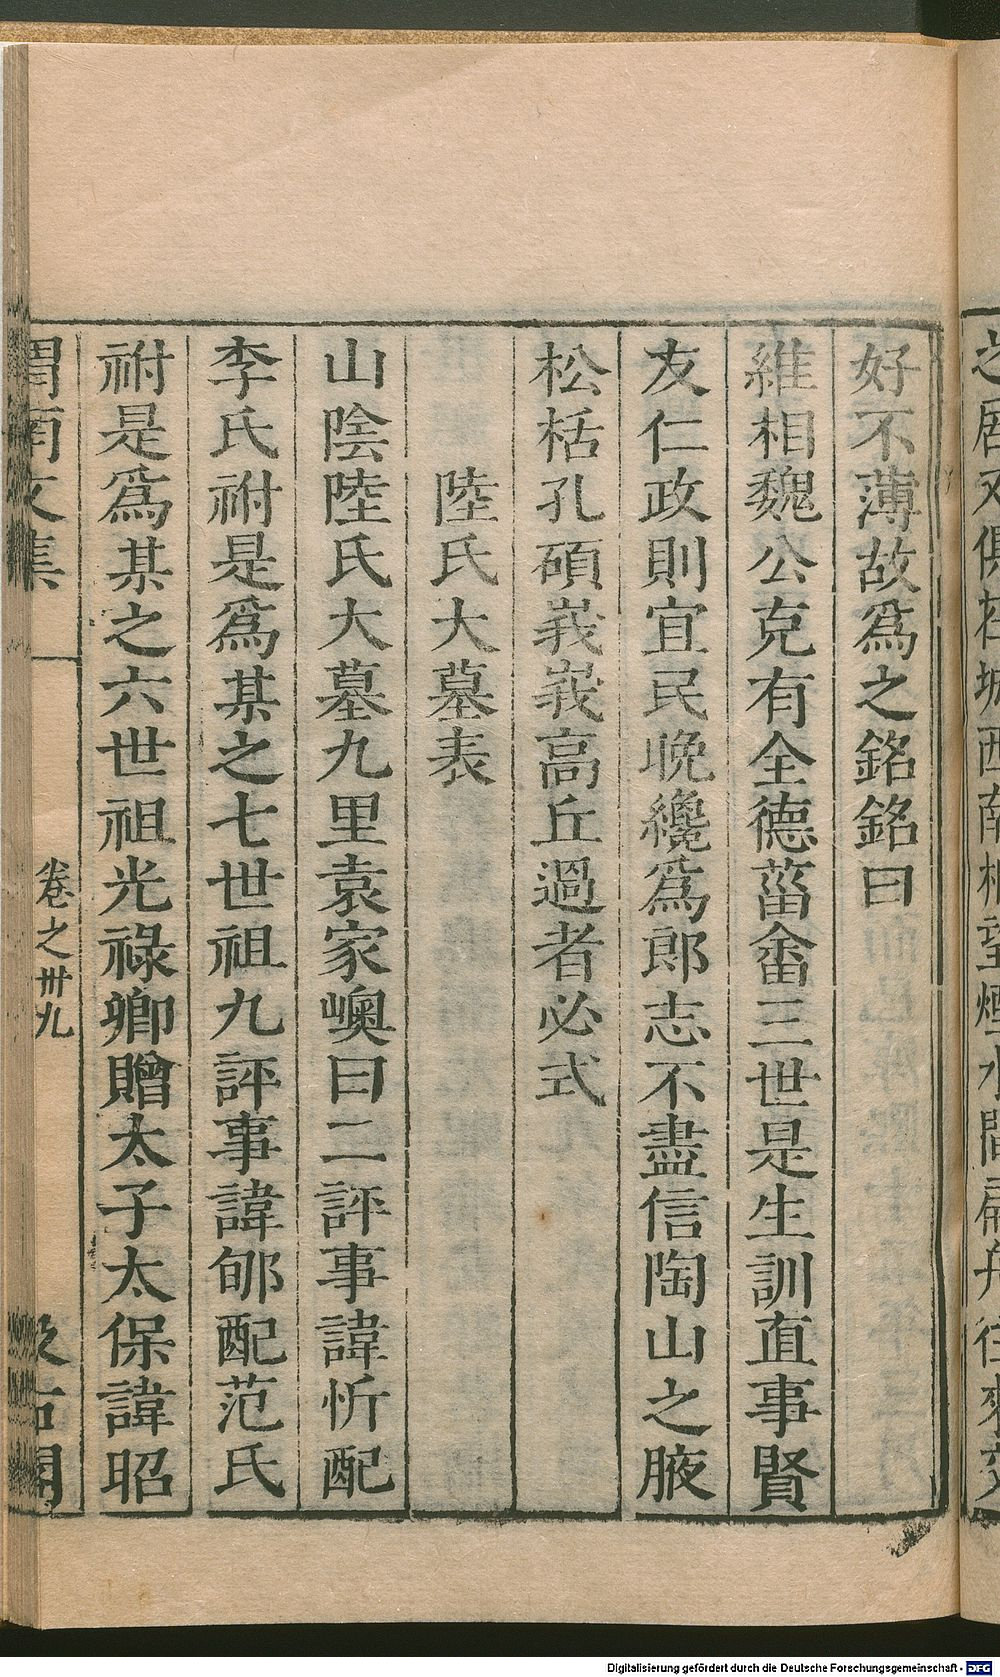 好不薄故爲之銘銘曰
維相魏公克有全德菑畬三世是生訓直事賢
友仁政則宜民晚纔爲郎志不盡信陶山之腋
松栝孔碩峩峩高丘過者必式
陸氏大墓表
山陰陸氏大墓九里袁家嶴曰二評事諱忻配
李氏祔是爲某之七世祖九評事諱郇配范氏
祔是爲某之六世祖光祿卿贈太子太保諱昭
渭南文集
卷之卅九
汲古閣
Digitalisierung gefördert durch die Deutsche Forschungsgemeinschaft - DFG